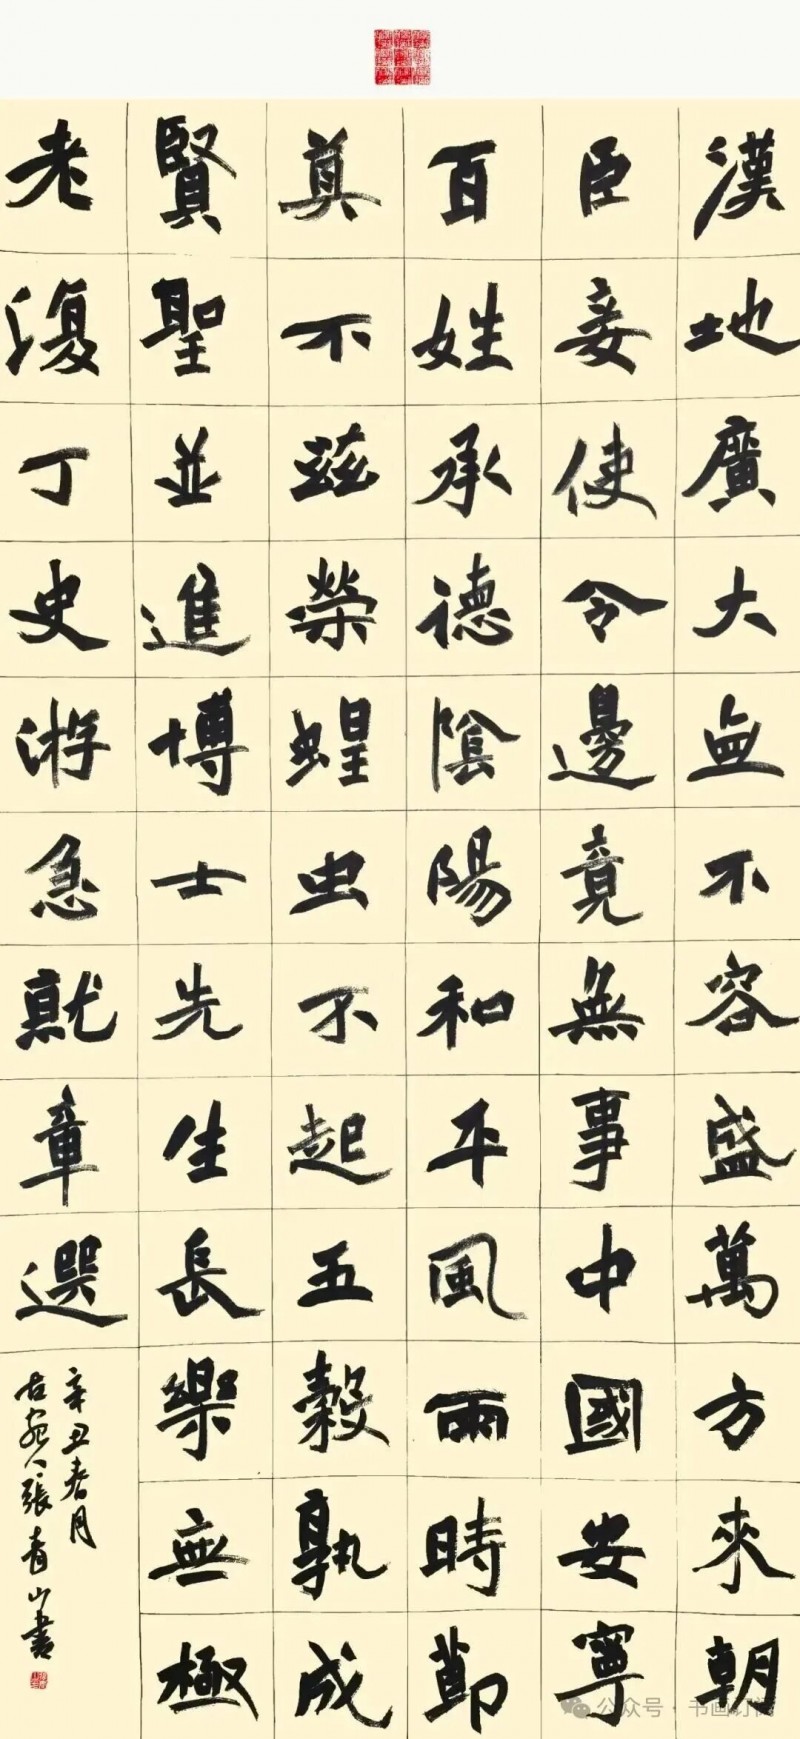 漢地廣大無不容盛萬方來朝
臣妾使令邊竟無事中國安寧
百姓承德陰陽和平風雨時節
莫不茲榮蝗虫不起五穀孰成
賢聖並進博士先生長樂無極
老復丁史游急就章選
辛丑春月
古宛人張青山書
公众号·书画订阅